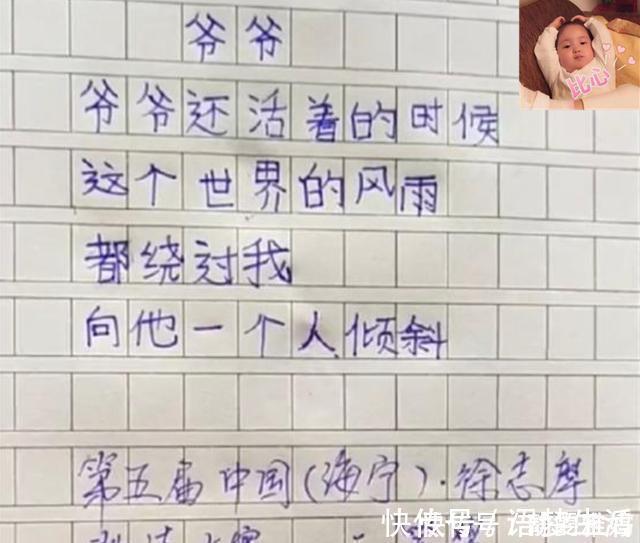 爷爷
比心
爷爷还活着的时候
这个世界的风雨
都绕过我
向他一个人倾斜
第五届中国(海宁)·徐志摩